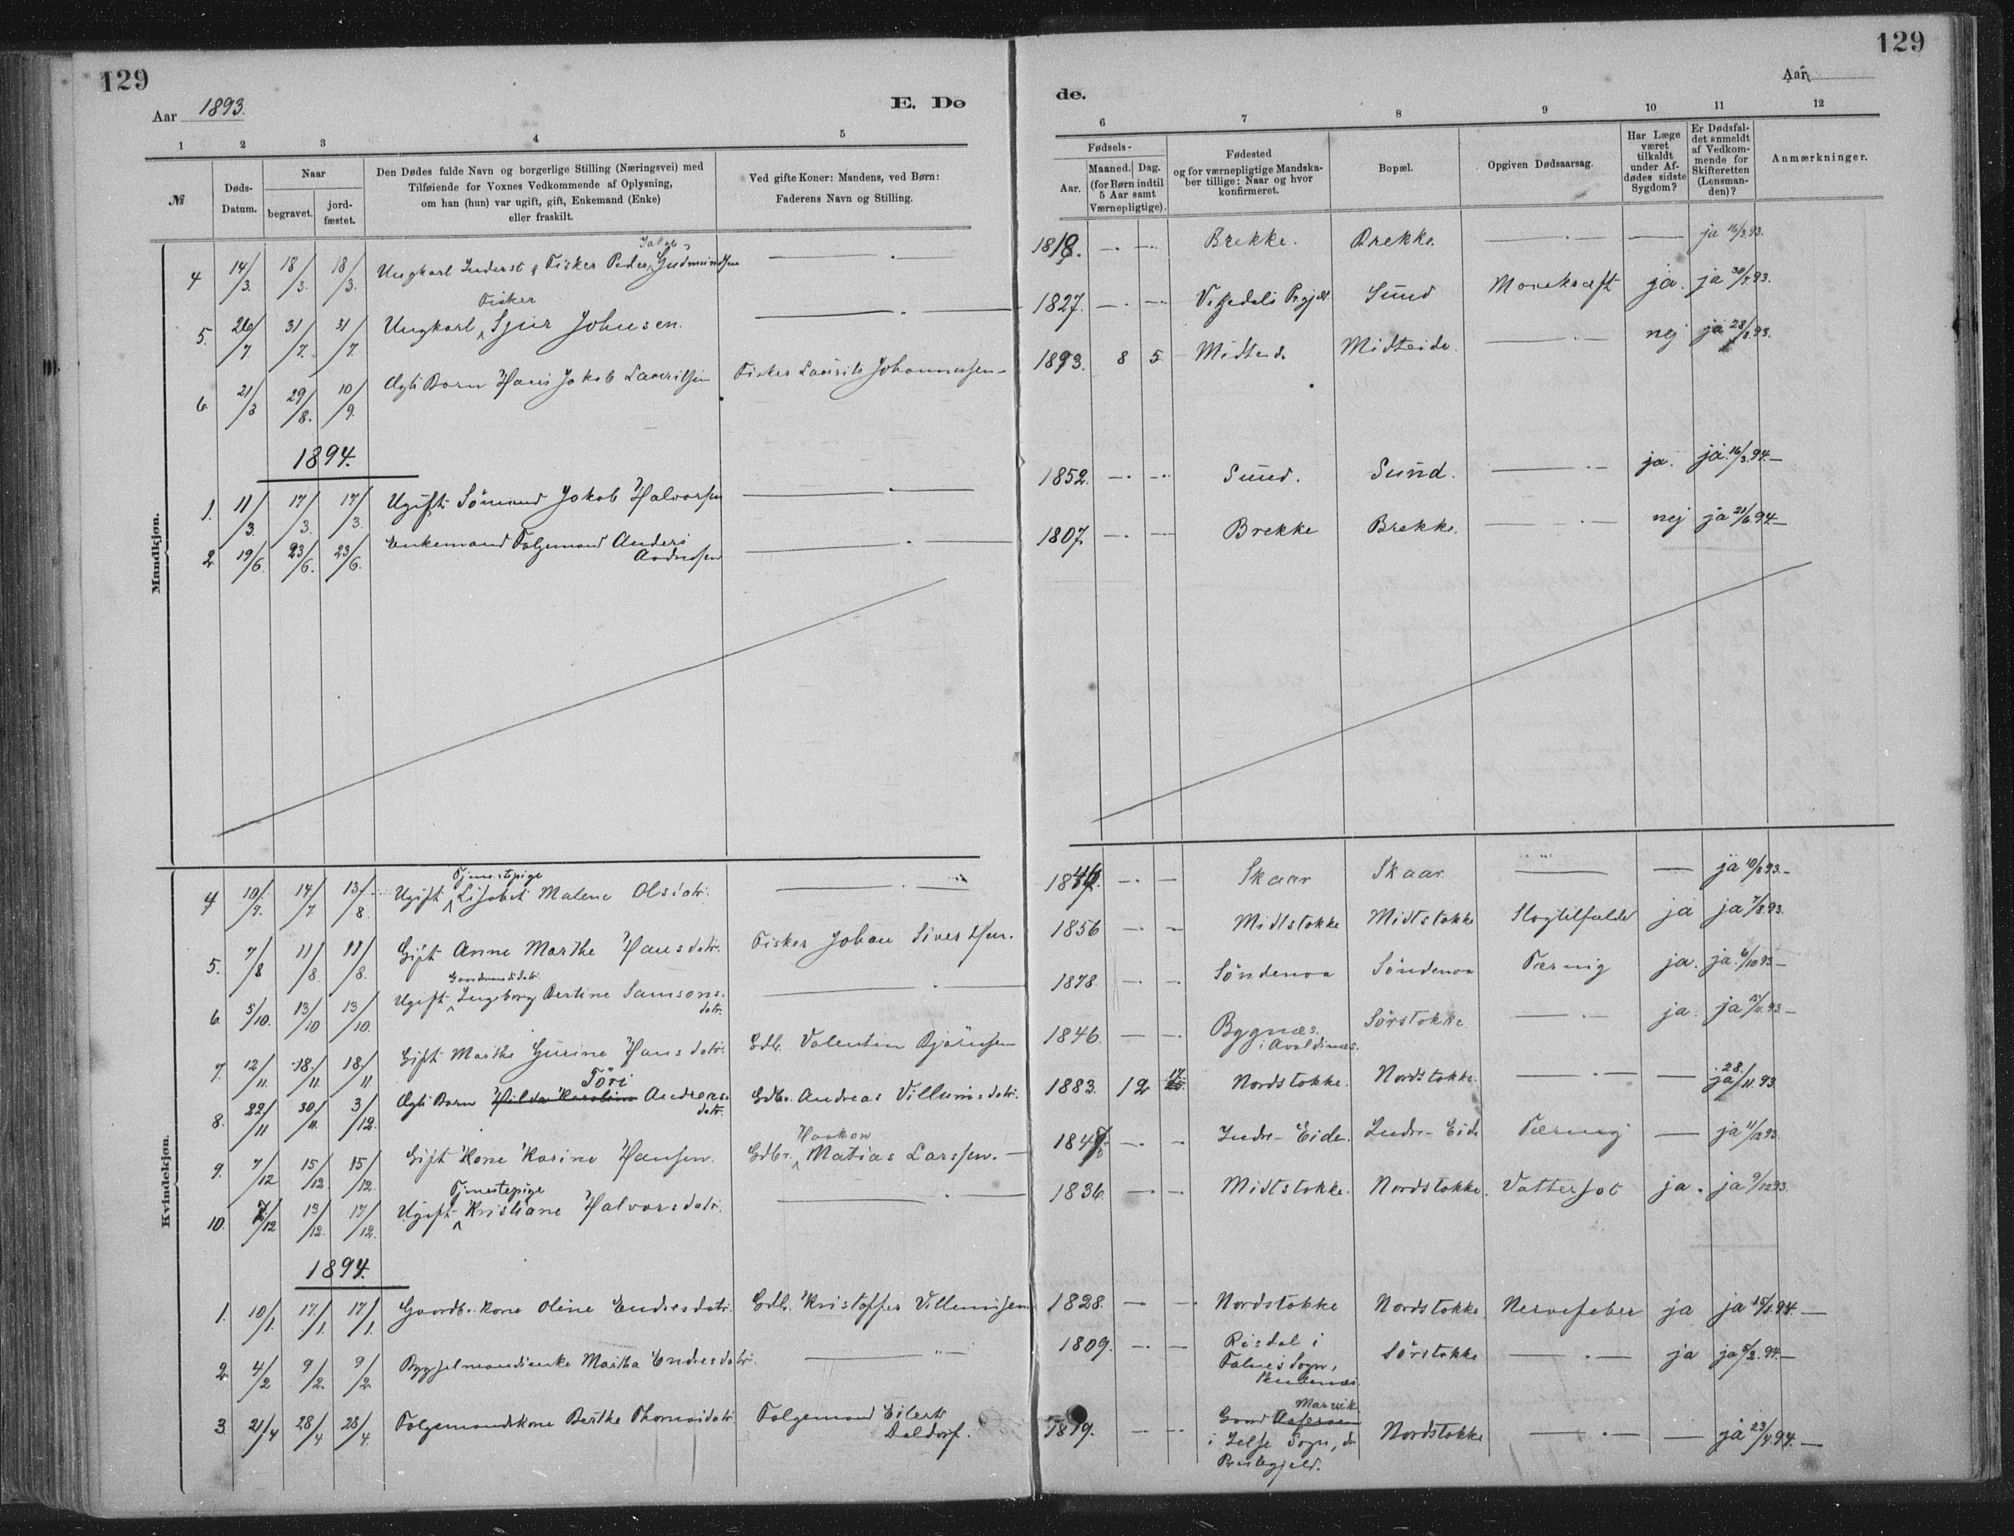 129
Aar 1893.
E. Dø
1 2 3 4 5
№
Døds-Datum.
Naar
begravet.
jord-fæstet.
Den Dødes fulde Navn og borgerlige Stilling (Næringsvei) med
Tilføiende for Voxnes Vedkommende af Oplysning,
om han (hun) var ugift, gift, Enkemand (Enke)
eller fraskilt.
Ved gifte Koner: Mandens, ved Børn:
Faderens Navn og Stilling.
Mandkjøn.
Jakob
4 14/3. 18/3. 18/3. Ungkarl Inderst & Fisker Peder Gudmundsen — . —
Fisker
5. 26/7. 31/7. 31/7. Ungkarl Sjur Johnsen. — . —
6. 21/8 29/8. 10/9. Ægte Barn Hans Jakob Lauritsen Fisker Laurits Johannessen
1894.
1. 11/3. 17/3. 17/3. Ugift Sömand Jakob Halvorsen — . —
2 19/6. 23/6. 23/6. Enkemand Folgemand Anders
Andersen — . —
Kvindekjøn.
Tjenestepige
4 10/7. 14/7. 13/8 Ugift Lisabet Malene Olsdatr. — . —
5. 7/8 11/8. 11/8. Gift Anne Marthe Hansdatr. Fisker Johan Sivertsen.
Gaardmandsdatr.
6. 5/10. 13/10 13/10. Ugift Ingeborg Bertine Samsons-
datr. — . —
7. 12/11. 18/11. 18/11 Gift Marthe Gurine Hansdatr. Gdb. Valentin Bjørnsen
Töri
8. 22/11 30/11. 3/12. Ægte Barn Hilda Karoline Andreas-
datr. Gdbr. Andreas Villumsdatr.
Haakon
9. 7/12 15/12. 15/12. Gift Kone Karine Hansen. Gdbr. Matias Larssen. —
Tjenestepige
10. 7/12 13/12. 17/12. Ugift Kristiane Halvorsdatr. — . —
1894.
1. 10/1. 17/1. 17/1. Gaardb. kone Oline Endresdatr. Gdb. Kristoffer Villumsen
2. 4/2 9/2. 9/2 Bygselmandsenke Martha Endresdatr. —
3. 21/4 28/4 28/4. Folgemandskone Berthe Thomasdatr. Folgemand Eilert
Daldorf.
129
Aar
de.
6 7 8 9 10 11 12
Fødsels-
Aar.
Maaned. Dag.
(for Børn indtil
5 Aar samt
Værnepligtige).
Fødested
og for værnepligtige Mandska-
ber tillige: Naar og hvor
konfirmeret.
Bopæl.
Opgiven Dødsaarsag.
Har Læge
været
tilkaldt
under Af-
dødes sidste
Sygdom?
Er Dødsfal-
det anmeldt
af Vedkom-
mende for
Skifteretten
(Lensman-
den)?
Anmærkninger.
1818. — . — . Brekke. Brekke. — . — — ja 16/3.93.
1827. — . — Prgjæl. Sund Marekræft ja. ja 30/7.93.
1893. 8 5. Midteide Midteide. — . — nej ja 28/8.93.
1852. — . — Sund. Sund. — . — ja. ja. 16/3.94. —
1807. — . — Brekke Brekke. — . — nej ja 21/6.94. —
— — Skaar Skaar — — ja 10/8 93. —
1856 — — Midtstokke Midtstokke Slagtilfælde ja ja 7/8.93.
1878. — — Söndenaa Söndenaa Tæring ja. ja. 6/10 93 —
1846. — — Bygnæs.
i Avaldsnæs. Sørstokke. — . — ja. ja 15/11.93 —
1883. 12 17 Nordstokke. Nordstokke. — . — — ja 28./11.93
— — Indre-Eide. Indre-Eide Tæring — ja 11/12 93.
1836. — — Midtstokke. Nordstokke. Vattersot ja. ja 9/12 93.
1828. — — Nordstokke Nordstokke. Nervefeber ja ja 15/1.94. —
1809. — — Risdal i
Falnes Sogn,
Skudenæs. Sörstokke — . — ja ja 5/2.94. —
Marvik
1819. — — Gaard
i Jelse Sogn, do
Præstegjeld. Nordstokke — . — — ja 23/4.94. —